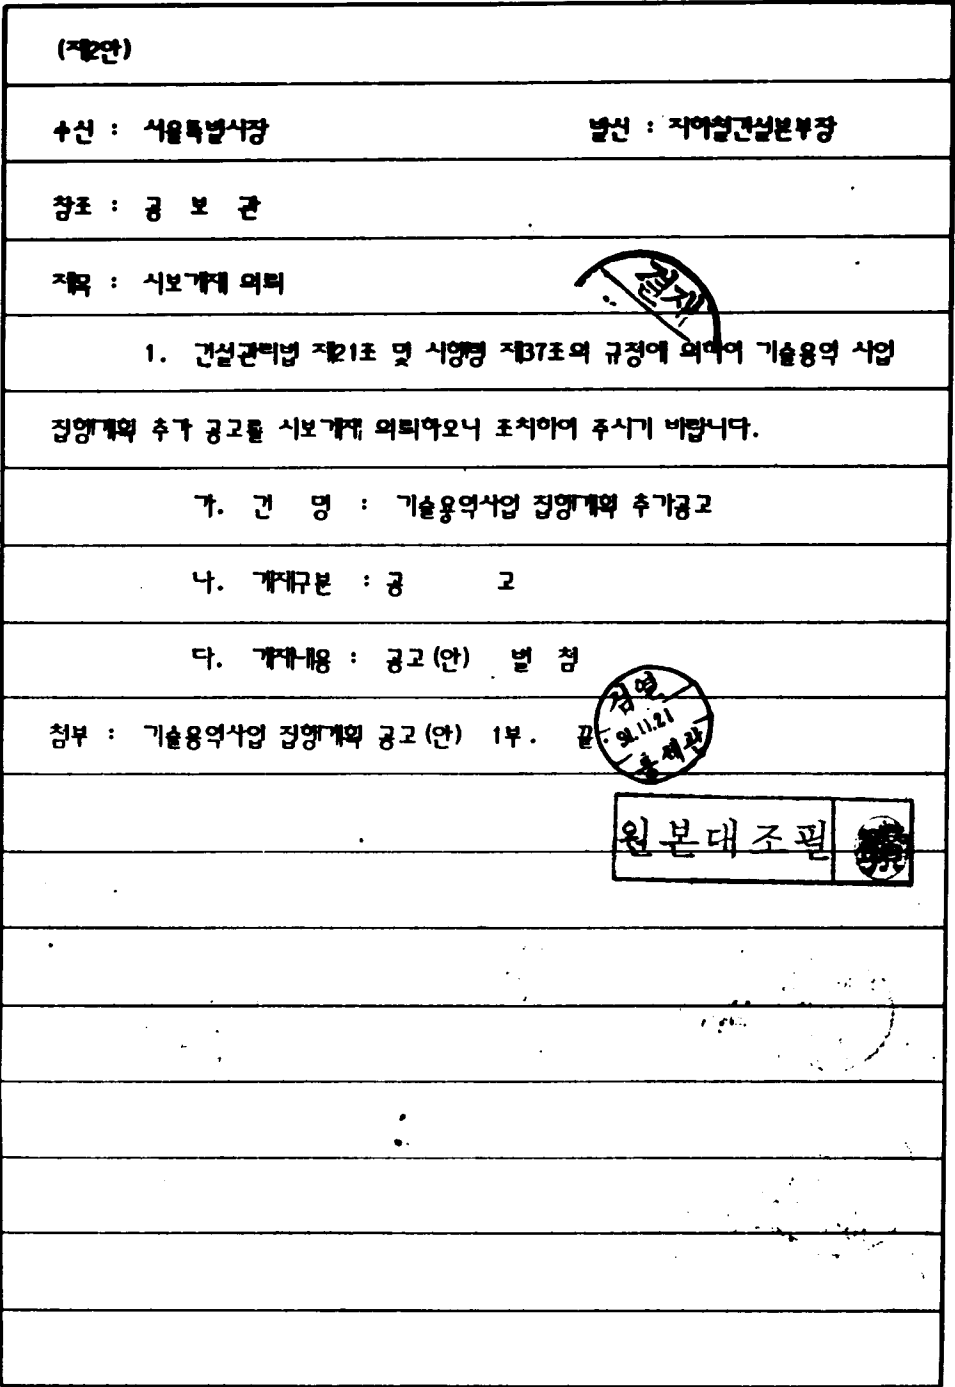 (제2안)
수신 : 서울특별시장 발신 : 지하철건설본부장
참조 : 공 보 관
제목 : 시보게재 의뢰
결재
1. 건설관리법 제21조 및 시행령 제37조의 규정에 의하여 기술용역 사업
집행계획 추가 공고를 시보게재 의뢰하오니 조치하여 주시기 바랍니다.
가. 건 명 : 기술용역사업 집행계획 추가공고
나. 게재구분 : 공 고
다. 게재내용 : 공고(안) 별 첨
첨부 : 기술용역사업 집행계획 공고(안) 1부. 끝.
검열
91.11.21
통제관
원본대조필